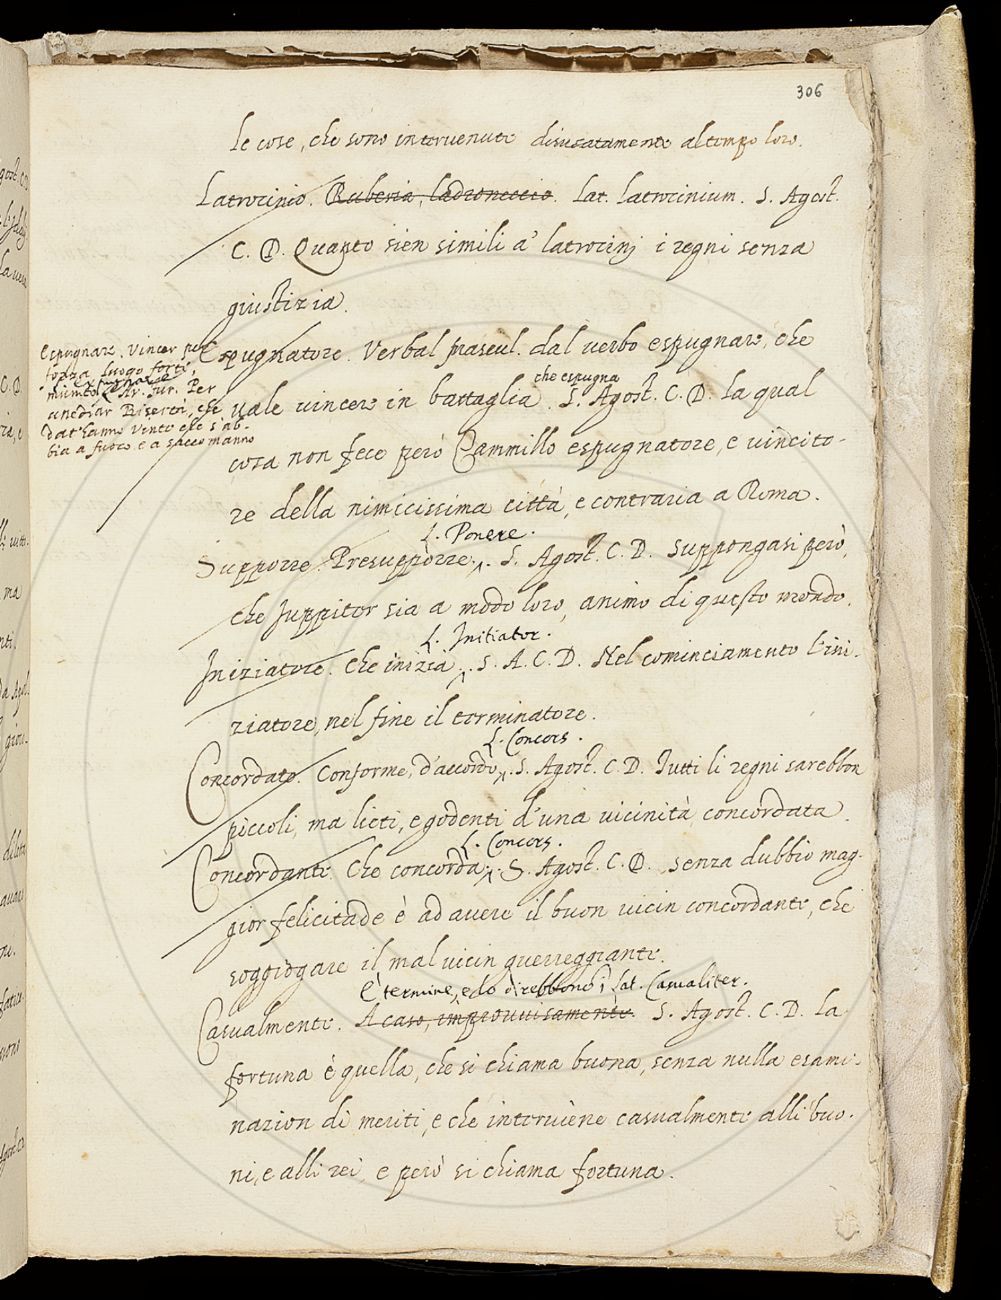 306
le cose, che sono interuenute disusatamente al tempo loro.
Latrocinio. Ruberia, ladroneccio. Lat. latrocinium. S. Agost.
C. D. Quanto sien simili a' latrocinj i regni senza
giustizia.
Espugnatore. Verbal mascul. dal uerbo espugnare, che
uale uincere in battaglia. S. Agost. C. D. La qual
che espugna
cosa non fece però Cammillo espugnatore, e uincito-
re della nimicissima città, e contraria a Roma.
espugnare. Vincer per
forza luogo forte,
expugnare
Per
rimediar Biserta, che
dat'hanno vinto che s'ab-
bia a fuoco e a saccomanno
L. Ponere.
Supporre. Presupporre. S. Agost. C. D. Suppongasi però,
che Juppiter sia a modo loro, animo di questo mondo.
L. Initiator.
Iniziatore. Che inizia. S. A. C. D. Nel cominciamento l'ini-
ziatore, nel fine il terminatore.
L. Concors.
Concordato. Conforme, d'accordo. S. Agost. C. D. Tutti li regni sarebbon
piccoli, ma lieti, e godenti d'una uicinità concordata.
L. Concors.
Concordante. Che concorda. S. Agost. C. D. Senza dubbio mag-
gior felicitade è ad auere il buon uicin concordante, che
soggiogare il mal uicin guerreggiante.
E' termine, e lo direbbono i Lat. Casualiter.
Casualmente. A caso, improuuisamente. S. Agost. C. D. La
fortuna è quella, che si chiama buona, senza nulla esami-
nazion di meriti, e che interuiene casualmente alli buo-
ni, e alli rei, e però si chiama fortuna.